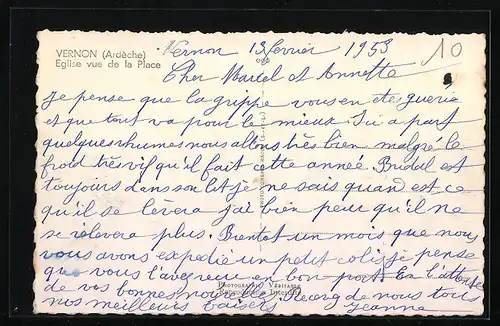 VERNON (Ardèche)
Eglise vue de la Place
Vernon 13 fevrier 1953
10
Cher Marcel et Annette
je pense que la grippe vous en ete guerie
et que tout va pour le mieux. Ici a part
quelques rhumes nous allons très bien malgré le
froid très vif qu'il fait cette année. est
toujours dans son lit je ne sais quand est ce
qu'il se lèvera j'ai bien peur qu'il ne
se relevera plus. Bientot un mois que nous
vous avons expedié un petit colis je pense
que vous l'avez reçu en bon port. En l'attente
de vos bonnes nouvelles de nous tous
nos meilleurs baisers Jeanne
PHOTOGRAPHIE VÉRITABLE
Reproduction Interdite